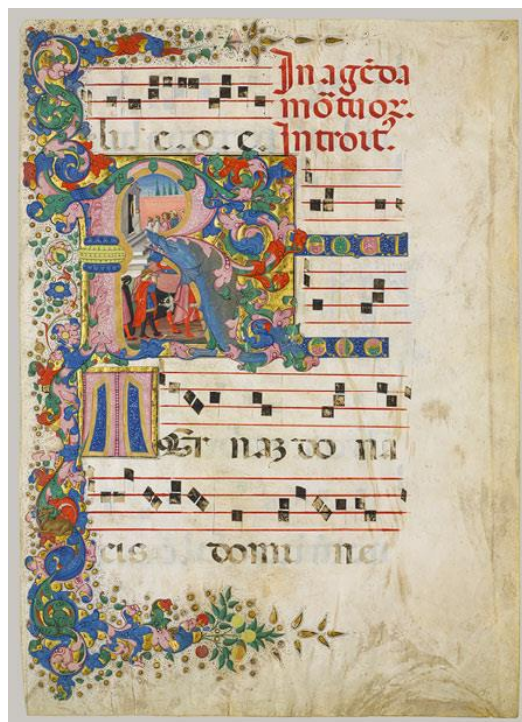 In agēda
mōtuor.
Introit᾽.
lu. e.o.e.
R
Et naz do na
eis domine